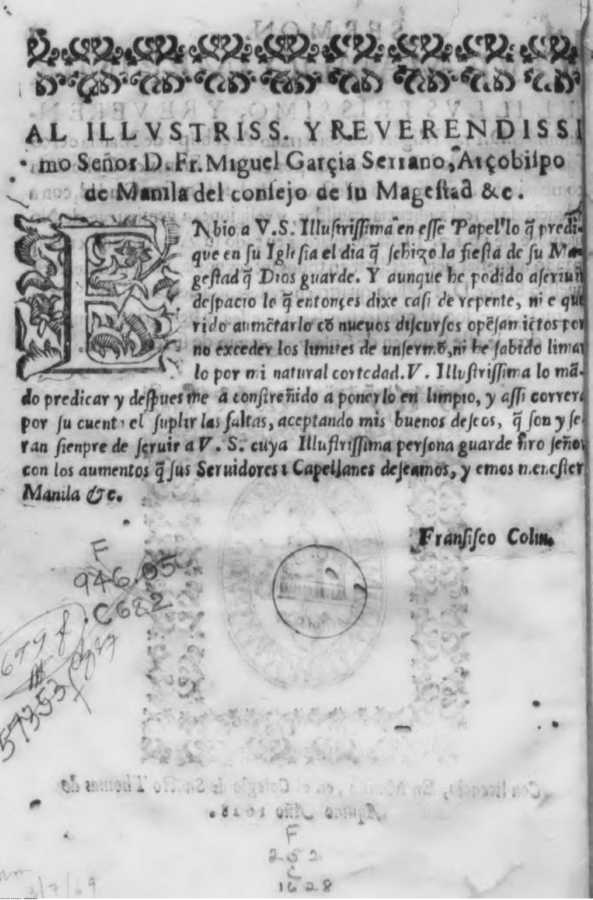 AL ILLVSTRISS. Y REVERENDISSI
mo Señor D. Fr. Miguel Garçia Serrano, Arçobiſpo
de Manila del conſejo de ſu Mageſtad &c.
ENbio a V.S. Illuſtriſſima en eſſe Papel lo q̃ predi-
que en ſu Igleſia el dia q̃ ſe hizo la fieſta de ſu Ma-
geſtad q̃ Dios guarde. Y aunque he podido
deſpacio lo q̃ entonçes dixe caſi de repente, ni e que
rido aumẽtarlo cõ nueuos diſcurſos por
no exceder los limites de vn ſermõ, ni he ſabido limar
lo por mi natural cortedad. V. Illuſtriſſima lo mã-
do predicar y deſpues me a conſtreñido a ponerlo en limpio, y aſſi correra
por ſu cuenta el ſuplir las faltas, aceptando mis buenos deſeos, q̃ ſon y ſe-
ran ſienpre de ſeruir a V. S. cuya Illuſtriſſima perſona guarde ñro ſeñor
con los aumentos q̃ ſus Seruidores i Capellanes deſeamos, y emos meneſter
Manila &c.
Franſiſco Colin.
F
946.05
.C682
57353
Con licencia, En Manila, en el Colegio de Santo Thomas de
Aquino Año 1628.
F
252
C
1628
3/7/69